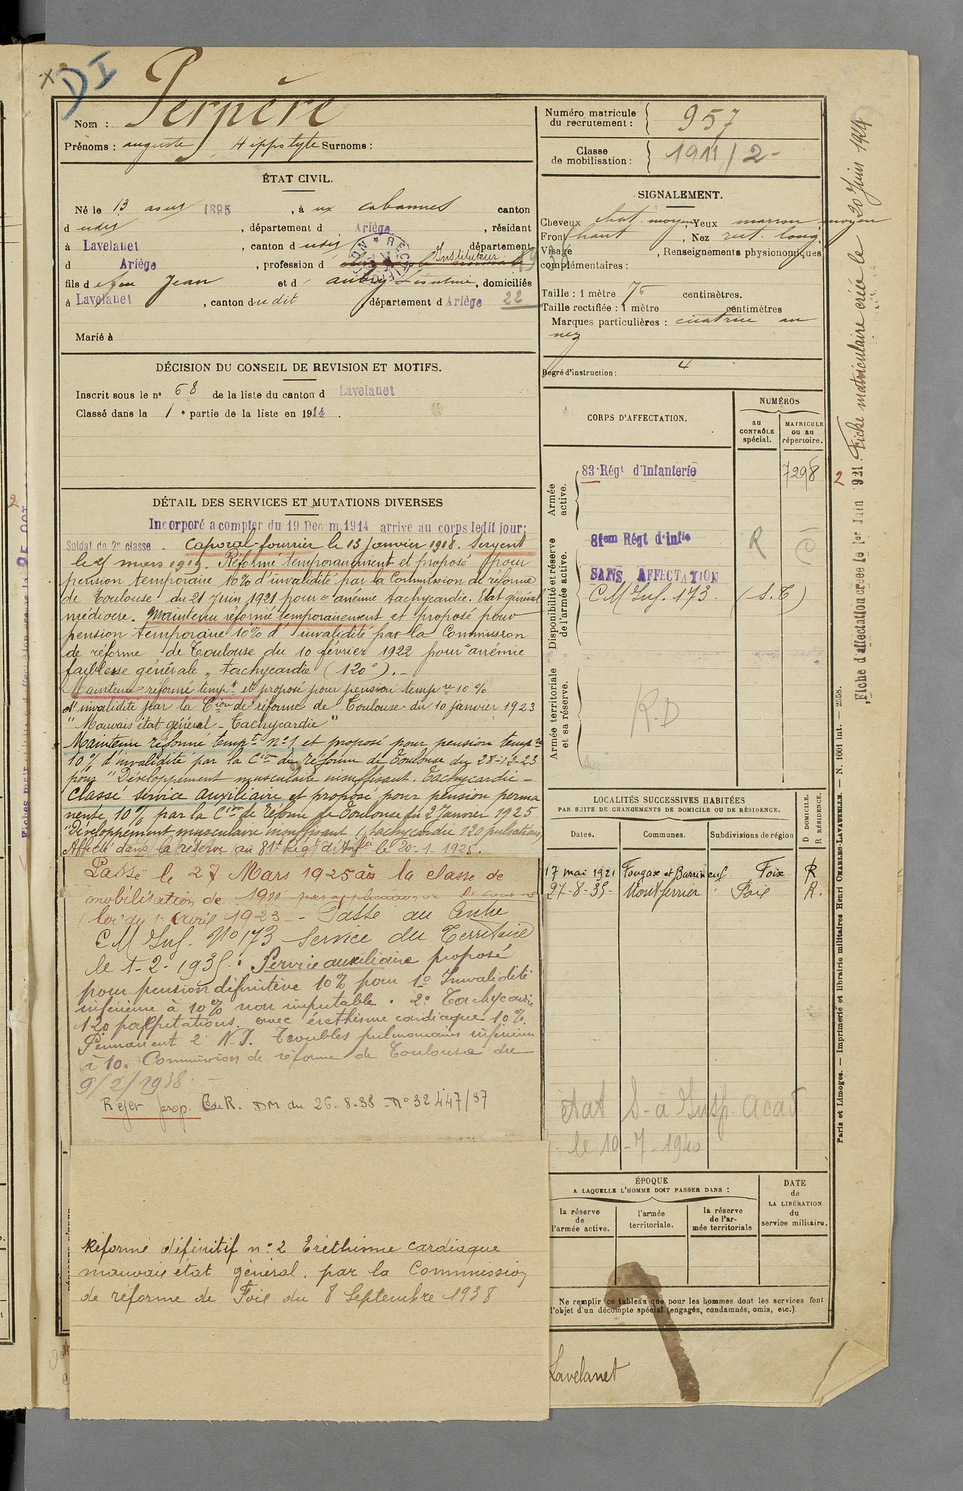 DI
Nom : Perpère
Prénoms : auguste Hippolyte Surnoms :
ÉTAT CIVIL.
Né le 13 aout 1895, à aux cabannes canton
d udis, département d Ariège, résidant
à Lavelanet, canton d udis, département
d Ariège, profession d Instituteur
fils d e feu Jean et d, domiciliés
à Lavelanet, canton du dit, département d Ariège 22
Marié à
DÉCISION DU CONSEIL DE REVISION ET MOTIFS.
Inscrit sous le n° 68 de la liste du canton d Lavelanet
Classé dans la 1e partie de la liste en 1914.
DÉTAIL DES SERVICES ET MUTATIONS DIVERSES
Incorporé a compter du 19 Decem 1914 arrive au corps ledit jour;
Soldat de 2e classe. Caporal-fourrier le 13 janvier 1918. Sergent
le mars 1919. Réformé temporairement et proposé pour
pension temporaire 10% d'invalidité par la Commission de réforme
de Toulouse du 21 juin 1921 pour "anémie tachycardie. Etat général
médiocre. Maintenu réformé temporairement et proposé pour
pension temporaire 10% d'invalidité par la Commission
de réforme de Toulouse du 10 février 1922 pour "anémie
faiblesse générale, tachycardie (120").-
Maintenu réformé tempt et proposé pour pension tempre 10%
d'invalidité par la Cion de réforme de Toulouse du 10 janvier 1923
"Mauvais état général - Tachycardie"
Maintenu réformé tempt n°1 et proposé pour pension tempre
10% d'invalidité par la Cion de réforme de Toulouse du 28-12-23
pour "Développement musculaire insuffisant. Tachycardie -
Classé service auxiliaire et proposé pour pension perma
nente 10% par la Cion de Réforme de Toulouse du 2 Janvier 1925
"Développement musculaire insuffisant (tachycardie 120 pulsations)
Affecté dans la réserve au 81e Rég d'Infie le 20-1-1925.
Passé le 27 Mars 1925 à la classe de
mobilisation de 1911 par application
(loi du 1 avril 1923 - Passé au Centre
C M Inf. N° 173 Service du Territoire
le 1-2-1935. Service auxiliaire proposé
pour pension définitive 10% pour 1° Invalidité
inférieure à 10% non imputable. 2° Tachycardie
120 palpitations, avec éréthisme cardiaque 10%.
Permanent 2° N.I. Troubles pulmonaires inférieurs
à 10. Commission de réforme de Toulouse du
9/2/1938.
Rejet prop. CdeR. DM du 26-8-38 - N° 32447/37
Réformé définitif n°2 Eréthisme cardiaque
mauvais état général. par la Commission
de réforme de Foix du 8 Septembre 1938
Numéro matricule du recrutement : 957
Classe de mobilisation : 1911/2
SIGNALEMENT.
Cheveux chat. moyen Yeux marron moyen
Front haut, Nez rect. long.
Visage, Renseignements physionomiques
complémentaires :
Taille : 1 mètre 75 centimètres.
Taille rectifiée : 1 mètre centimètres
Marques particulières : cicatrice au
nez
Degré d'instruction : 4
CORPS D'AFFECTATION.
NUMÉROS
au CONTRÔLE spécial.
MATRICULE ou au répertoire.
Armée active.
83e Régt d'Infanterie 7298
Disponibilité et réserve de l'armée active.
81em Régt d'Infie R
SANS AFFECTATION
C M Inf. 173. (S.T)
Armée territoriale et sa réserve.
R.D
LOCALITÉS SUCCESSIVES HABITÉES
PAR SUITE DE CHANGEMENTS DE DOMICILE OU DE RÉSIDENCE.
Dates. Communes. Subdivisions de région
D DOMICILE. R RÉSIDENCE.
17 mai 1921 Fougax et Barrineuf Foix R
27-8-35- Montferrier Foix R.
état S- à Insp. Acad
le 10-7-1940
ÉPOQUE
A LAQUELLE L'HOMME DOIT PASSER DANS :
la réserve de l'armée active.
l'armée territoriale.
la réserve de l'armée territoriale
DATE de LA LIBÉRATION du service militaire.
Ne remplir ce tableau que pour les hommes dont les services font
l'objet d'un décompte spécial (engagés, condamnés, omis, etc.).
Lavelanet
Paris et Limoges. — Imprimerie et librairie militaires Henri CHARLES-LAVAUZELLE. — N. 1001 int. — 2558.
Fiche d'affectation créée le 1er Juin 921. Fiche matriculaire créée le 20 Juin 1924
2